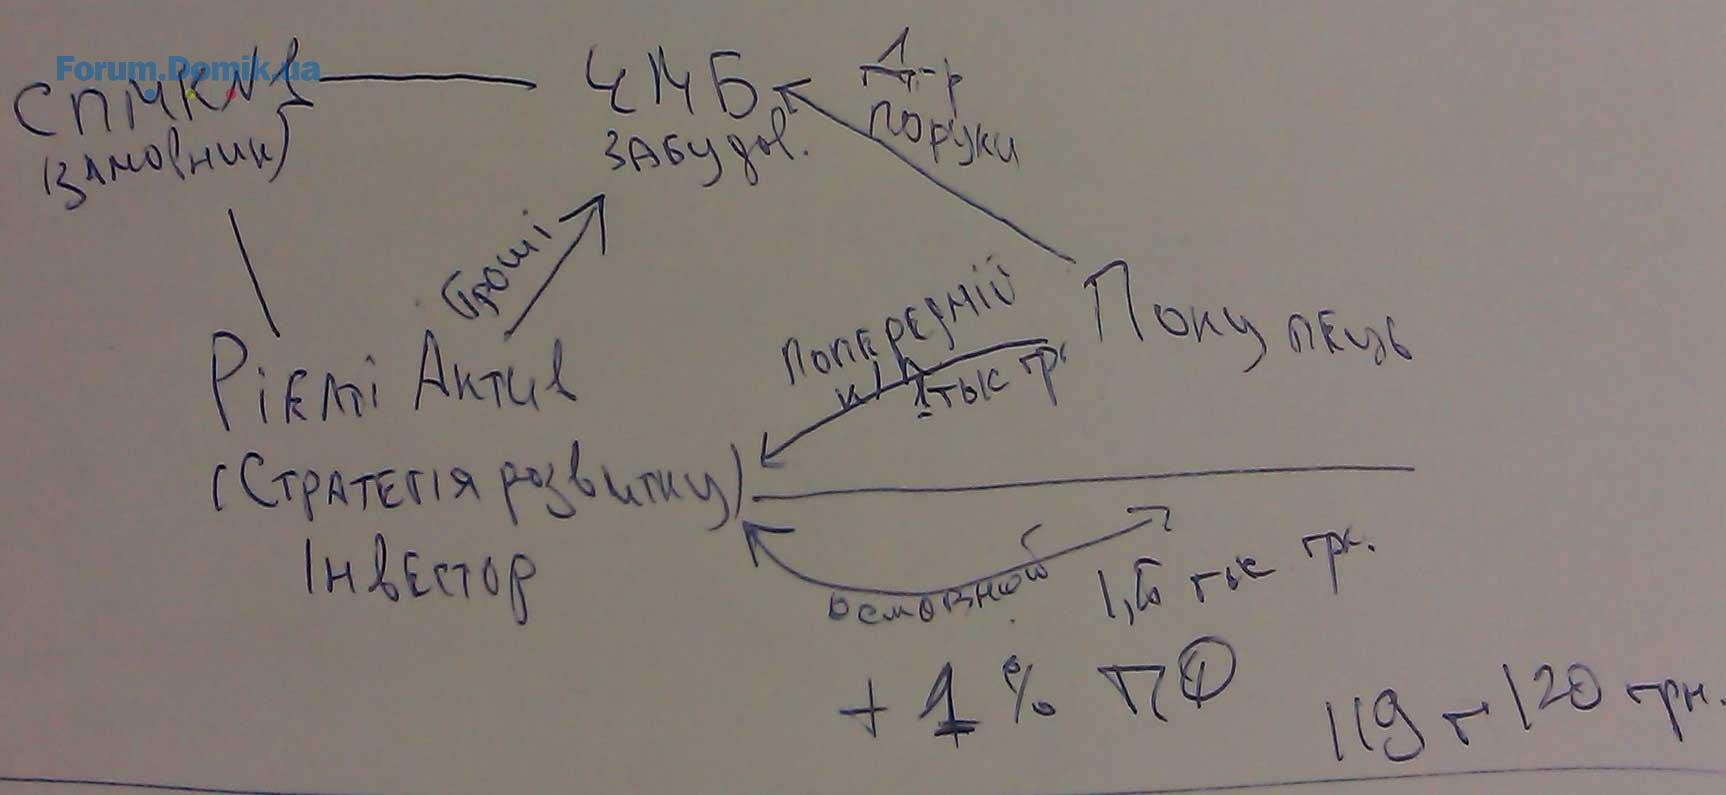 Forum.Domik.ua
СПМК №1
(Замовник)
ЧМБ
ЗАБУДОВ.
Д-р
ПОРУКИ
Гроші
Ріелті Актив
(Стратегія розвитку)
Інвестор
Покупець
Попередній
1 тыс гр.
основной
1,5 тыс грн.
+ 1 % ПФ
120 грн.